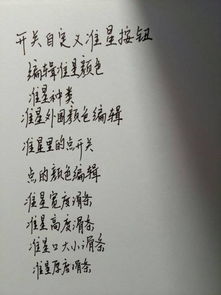 开关自定义准星按钮
编辑准星颜色
准星种类
准星外围颜色编辑
准星里的点开关
点的颜色编辑
准星宽度滑条
准星高度滑条
准星口大小滑条
准星厚度滑条